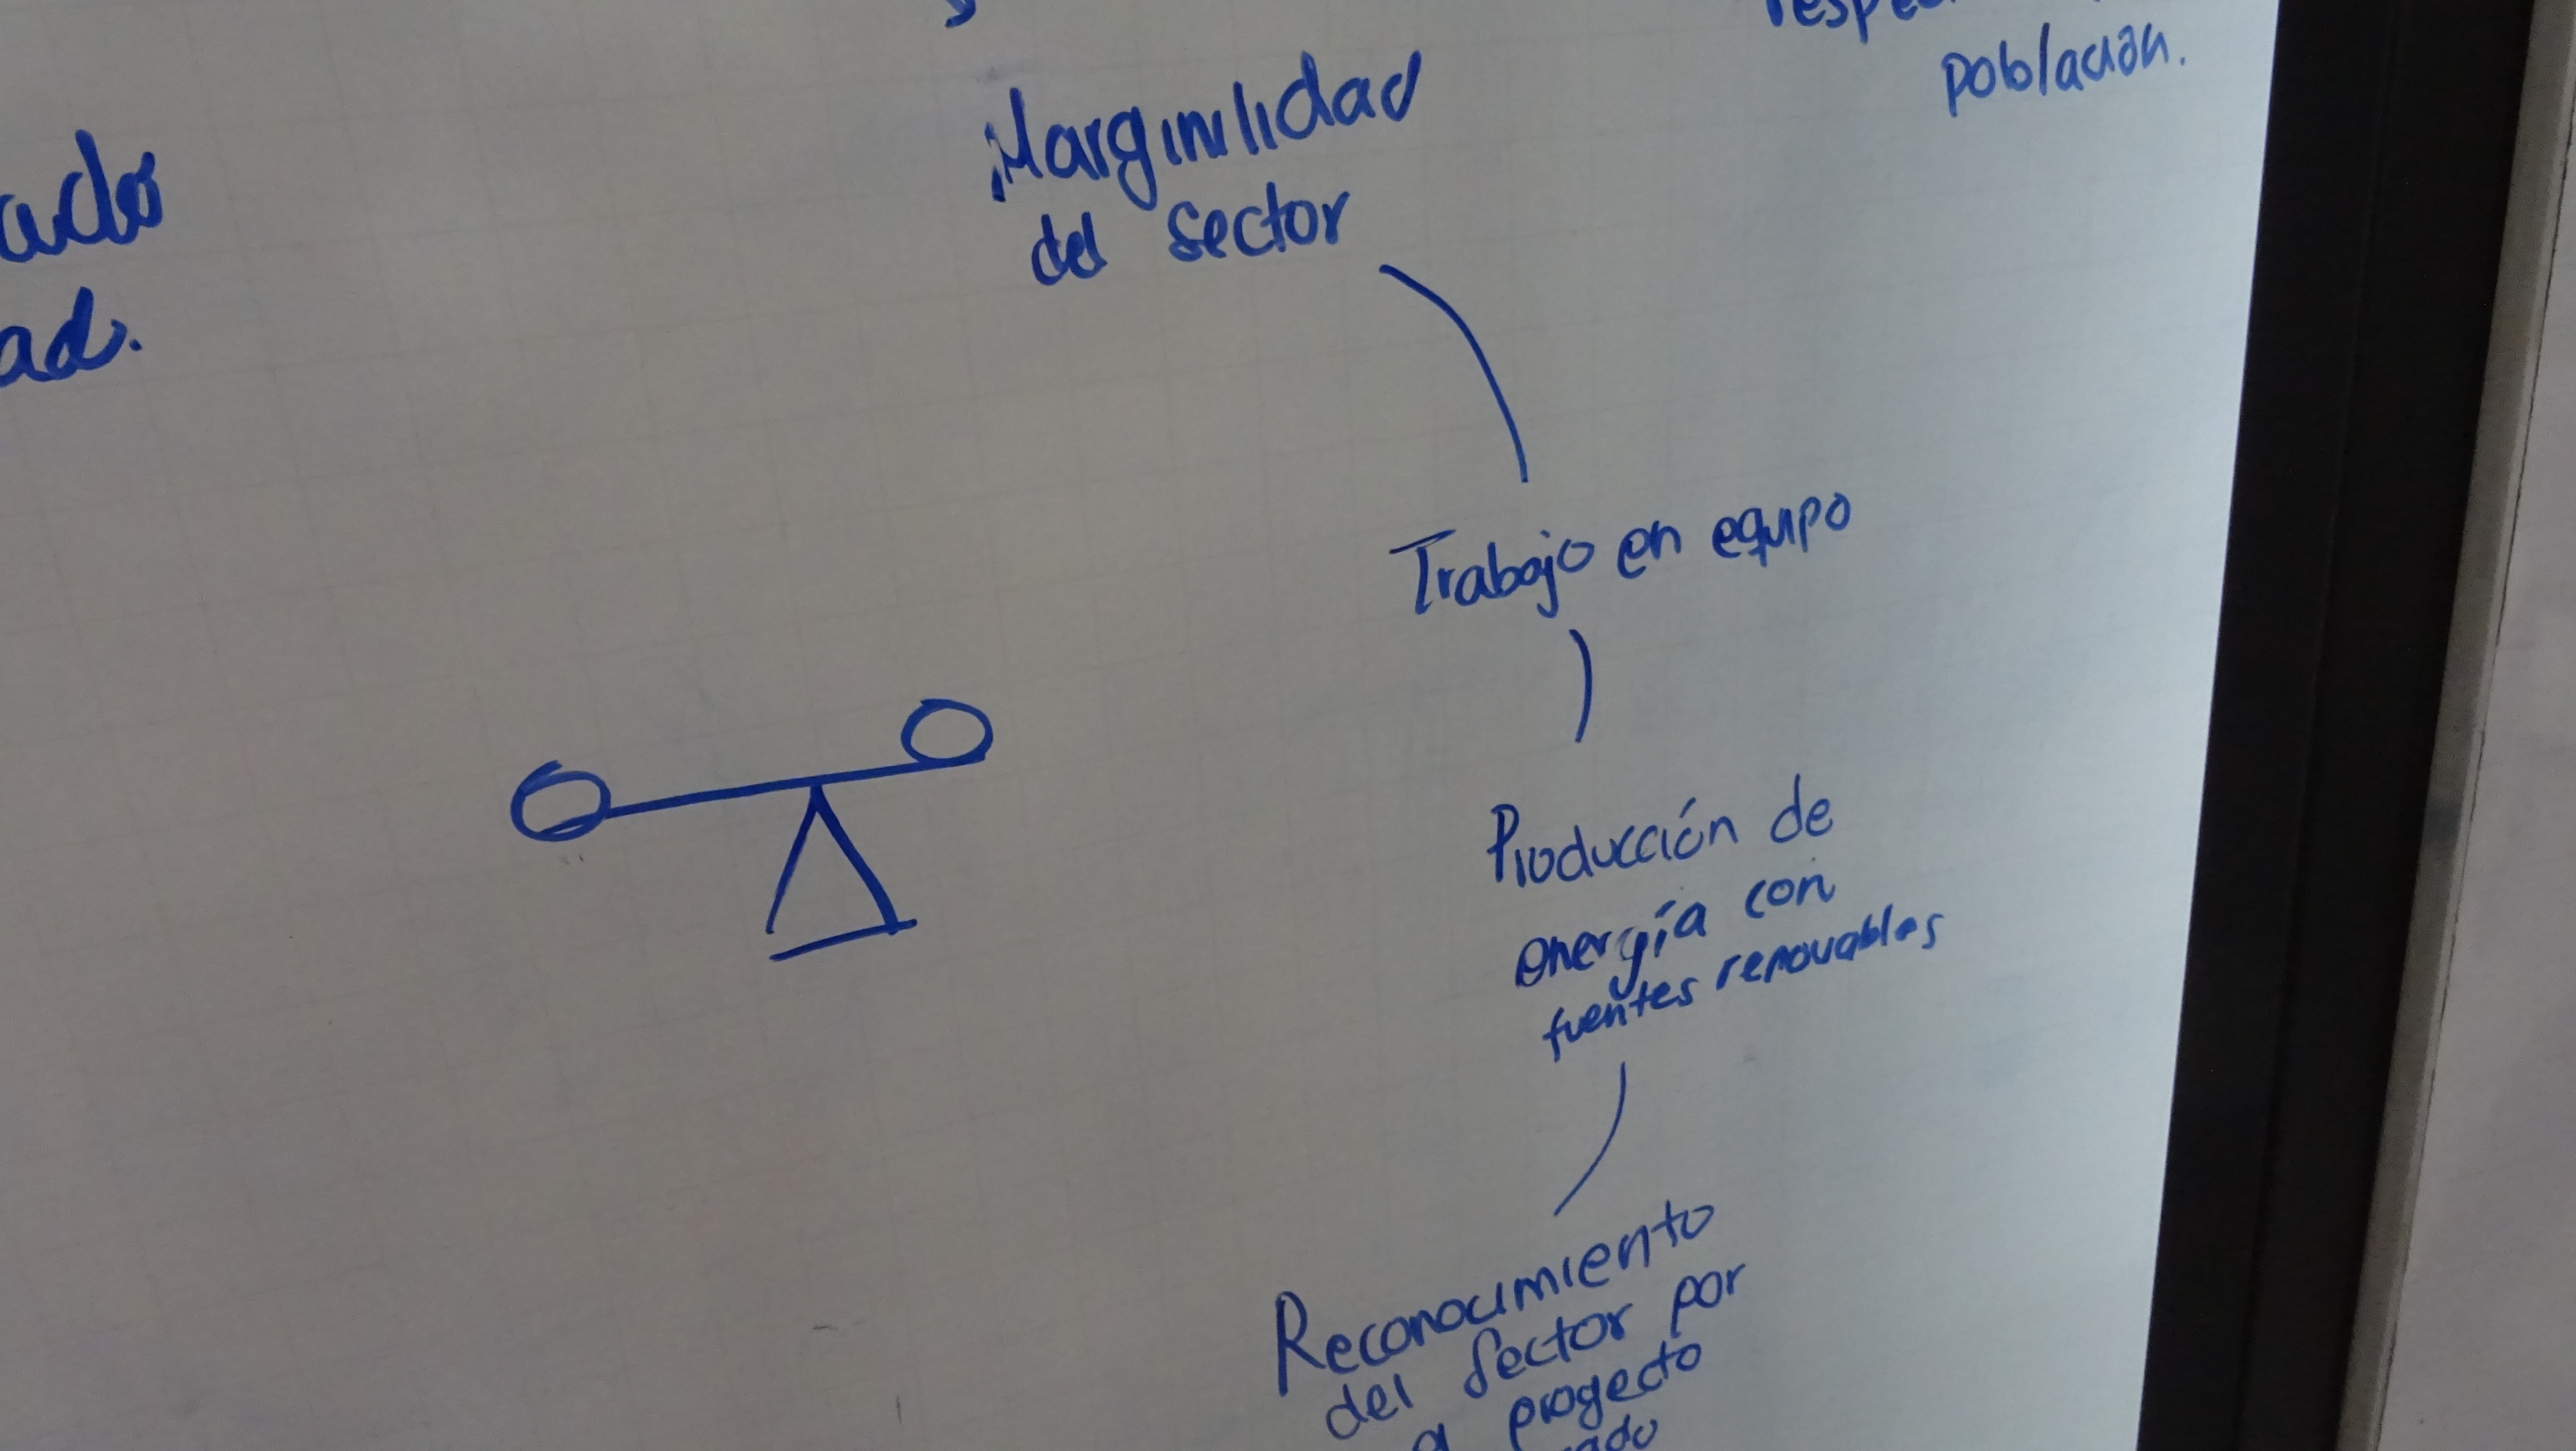 población.
Marginilidad
del sector
Trabajo en equipo
Producción de
energía con
fuentes renovables
Reconocimiento
del sector por
proyecto